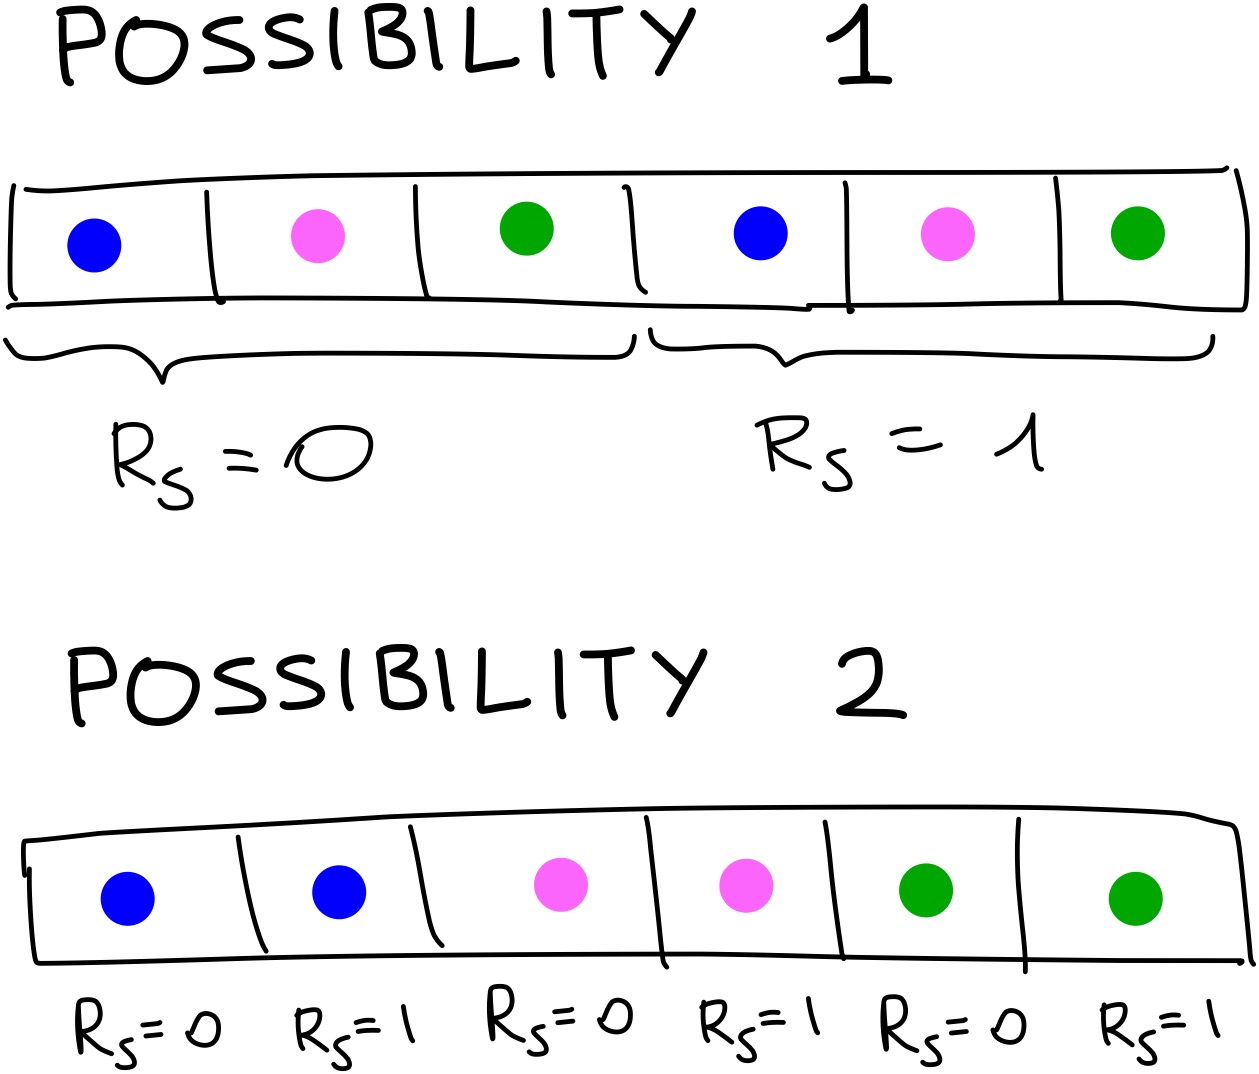 POSSIBILITY 1
Rs = 0 Rs = 1
POSSIBILITY 2
Rs=0 Rs=1 Rs=0 Rs=1 Rs=0 Rs=1